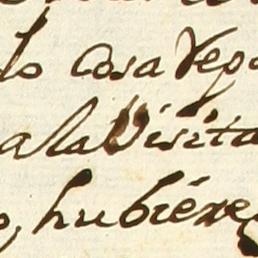 lo cosa Vep
a la Visita
hubiere